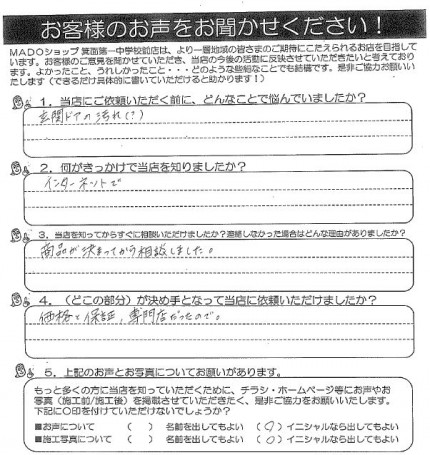 お客様のお声をお聞かせください！
MADOショップ 箕面第一中学校前店は、より一層地域の皆さまのご期待にこたえられるお店を目指して
います。お客様のご意見を聞かせていただき、当店の今後の活動に反映させていただきたいと考えており
ます。よかったこと、うれしかったこと・・・どのような些細なことでも結構です。是非ご協力お願いい
たします（できるだけ具体的に書いていただけると助かります！）
1．当店にご依頼いただく前に、どんなことで悩んでいましたか？
玄関ドアの汚れ(?)
2．何がきっかけで当店を知りましたか？
インターネットで
3．当店を知ってからすぐに相談いただけましたか？連絡しなかった場合はどんな理由がありましたか？
商品が決まってから相談しました。
4．（どこの部分）が決め手となって当店に依頼いただけましたか？
価格と保証，専門店だったので。
5．上記のお声とお写真についてお願いがあります。
もっと多くの方に当店を知っていただくために、チラシ・ホームページ等にお声やお
写真（施工前/施工後）を掲載させていただきたく、是非ご協力をお願いいたします。
下記に〇印を付けていただけないでしょうか？
■お声について （ ） 名前を出してもよい （〇）イニシャルなら出してもよい
■施工写真について （ ） 名前を出してもよい （〇）イニシャルなら出してもよい